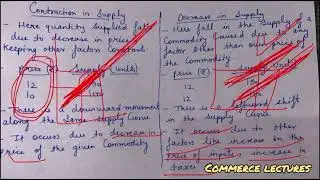 Contraction in Supply
- Here quantity supplied falls
due to decrease in price
Keeping other factors Constant.
Price (₹) Supply (units)
12
10
- There is a downward movement
along the same supply Curve
- It occurs due to decrease in
price of the given Commodity
Decrease in Supply
- Here fall in the supply of a
Commodity Caused due to any
factor other than own price of
the Commodity
price (₹) Supply (Units)
12
12
- There is a leftward shift
in the supply Curve
- It occurs due to other
factors like increase in the
Price of inputs, increase in
taxes
COMMERCE LECTURES